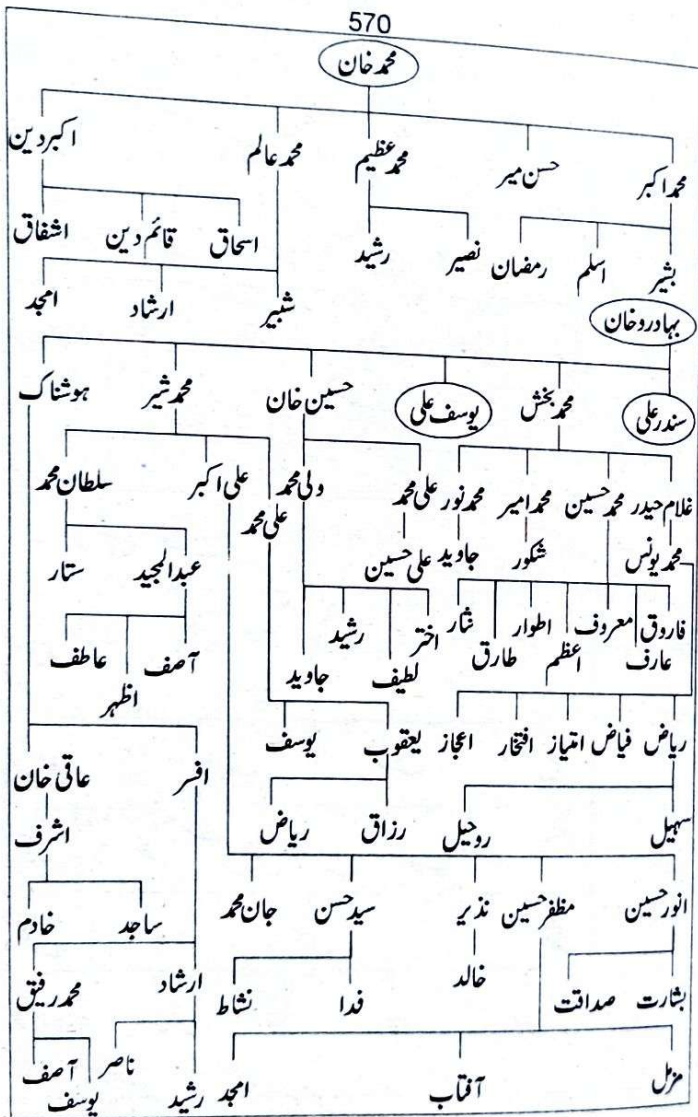 570
محمد خان
محمد اکبر حسن میر محمد عظیم محمد عالم اکبر دین
بشیر اسلم رمضان نصیر رشید اسحاق قائم دین اشفاق
شبیر ارشاد امجد
بہادرو خان
سندر علی محمد بخش یوسف علی حسین خان محمد شیر ہوشناک
غلام حیدر محمد حسین محمد امیر محمد نور علی محمد ولی محمد علی اکبر سلطان محمد
علی محمد
محمد یونس شکور جاوید علی حسین عبدالمجید ستار
فاروق عارف معروف اعظم اطوار طارق نثار اختر لطیف رشید جاوید آصف اظہر عاطف
ریاض فیاض امتیاز افتخار اعجاز یعقوب یوسف افسر عاقی خان
سہیل روحیل رزاق ریاض اشرف
انور حسین مظفر حسین نذیر سید حسن جان محمد ساجد خادم
بشارت صداقت خالد فدا نشاط ارشاد محمد رفیق
مزمل آفتاب امجد رشید ناصر یوسف آصف